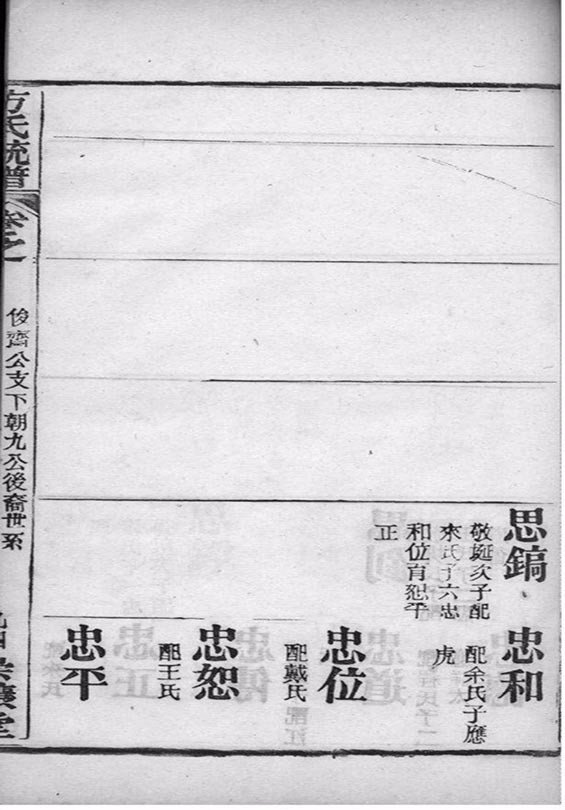 思鎬
敬
次子配
來氏子六忠
和位百恕平
正
忠和
配余氏子應
虎
忠位
配戴氏
忠恕
配王氏
忠平
方氏統譜
卷之一
俊齋公支下朝九公後裔世系